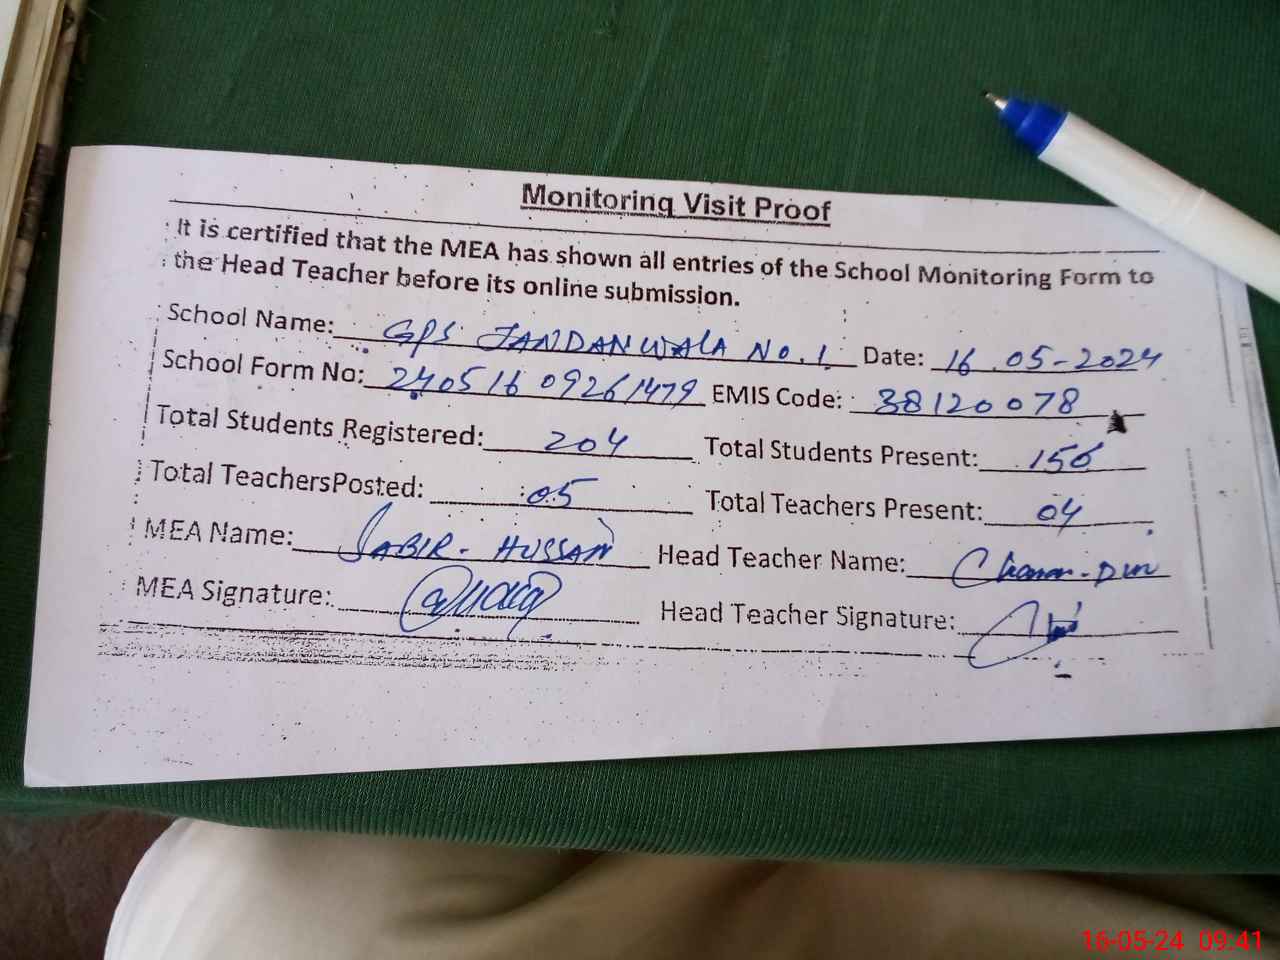 Monitoring Visit Proof
It is certified that the MEA has shown all entries of the School Monitoring Form to
the Head Teacher before its online submission.
School Name: GPS JANDANWALA No.1 Date: 16.05-2024
School Form No: 240516 09261479 EMIS Code: 38120078
Total Students Registered: 204 Total Students Present: 156
Total TeachersPosted: 05 Total Teachers Present: 04
MEA Name: SABIR- HUSSAIN Head Teacher Name: -Din
MEA Signature: Head Teacher Signature:
16-05-24 09:41